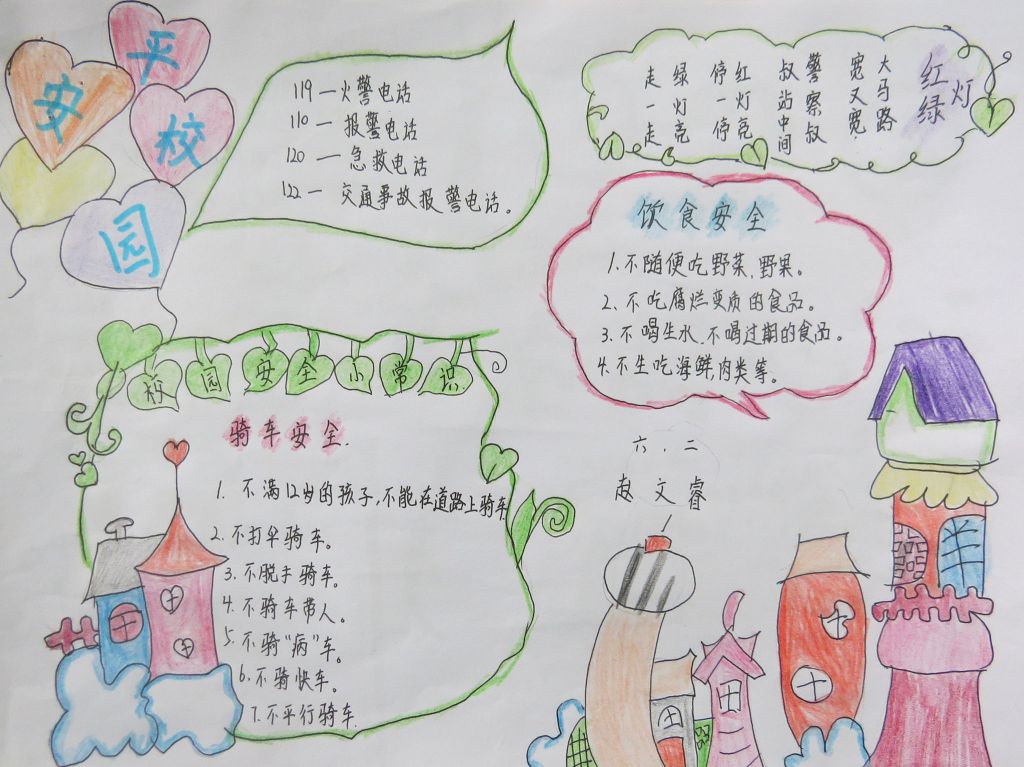 平安校园
119—火警电话
110—报警电话
120—急救电话
122—交通事故报警电话。
红绿灯
大马路
宽又宽
警察叔
叔站中间
红灯亮
停一停
绿灯亮
走一走
饮食安全
1.不随便吃野菜、野果。
2.不吃腐烂变质的食品。
3.不喝生水、不喝过期的食品。
4.不生吃海鲜,肉类等。
校园安全小常识
骑车安全.
1.不满12岁的孩子,不能在道路上骑车
2.不打伞骑车。
3.不脱手骑车。
4.不骑车带人。
5.不骑“病”车。
6.不骑快车。
7.不平行骑车.
六.二
赵文睿